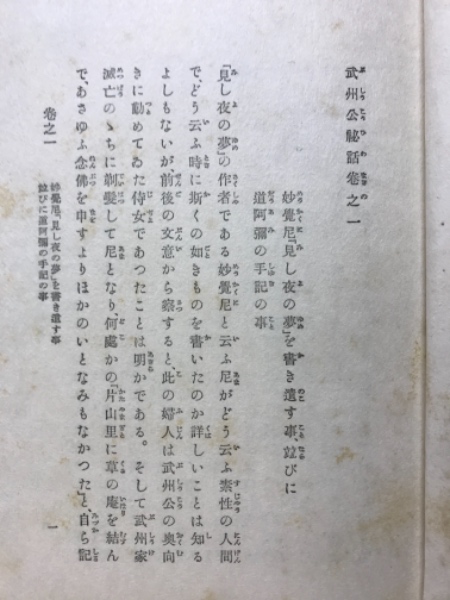 武州公秘話卷之一
妙覺尼『見し夜の夢』を書き遺す事、竝びに
道阿彌の手記の事
『見し夜の夢』の作者である妙覺尼と云ふ尼がどう云ふ素性の人間
で、どう云ふ時に斯くの如きものを書いたのか詳しいことは知る
よしもないが、前後の文意から察すると、此の婦人は武州公の奥向
きに勤めてゐた侍女であつたことは明かである。そして武州家
滅亡のゝちに剃髮して尼となり、何處かの『片山里に草の庵を結ん
で、あさゆふ念佛を申すよりほかのいとなみもなかつた』と、自ら記
卷之一
妙覺尼『見し夜の夢』を書き遺す事
竝びに道阿彌の手記の事
一